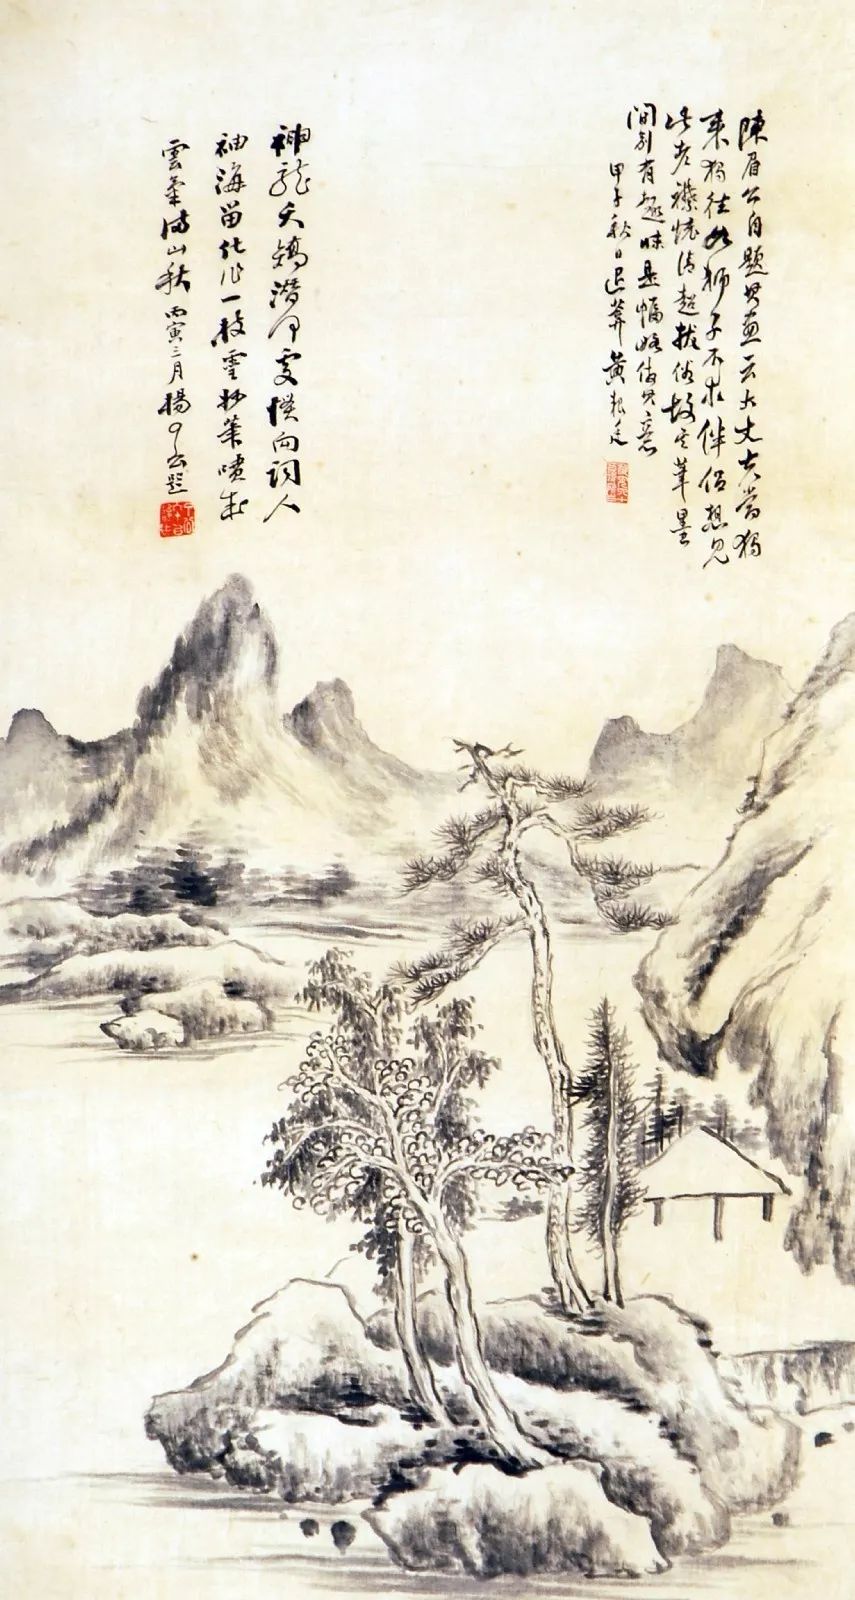 陳眉公自題其畫云大丈夫當獨
來獨往如獅子不求伴侶想見
此老襟懷清超拔俗故其筆墨
間別有趣味是幅略仿其意
甲子秋日退葊黃
神龍夭矯潛
袖海留化作一枝靈妙筆噴成
雲氣滿山秋 丙寅三月楊 題